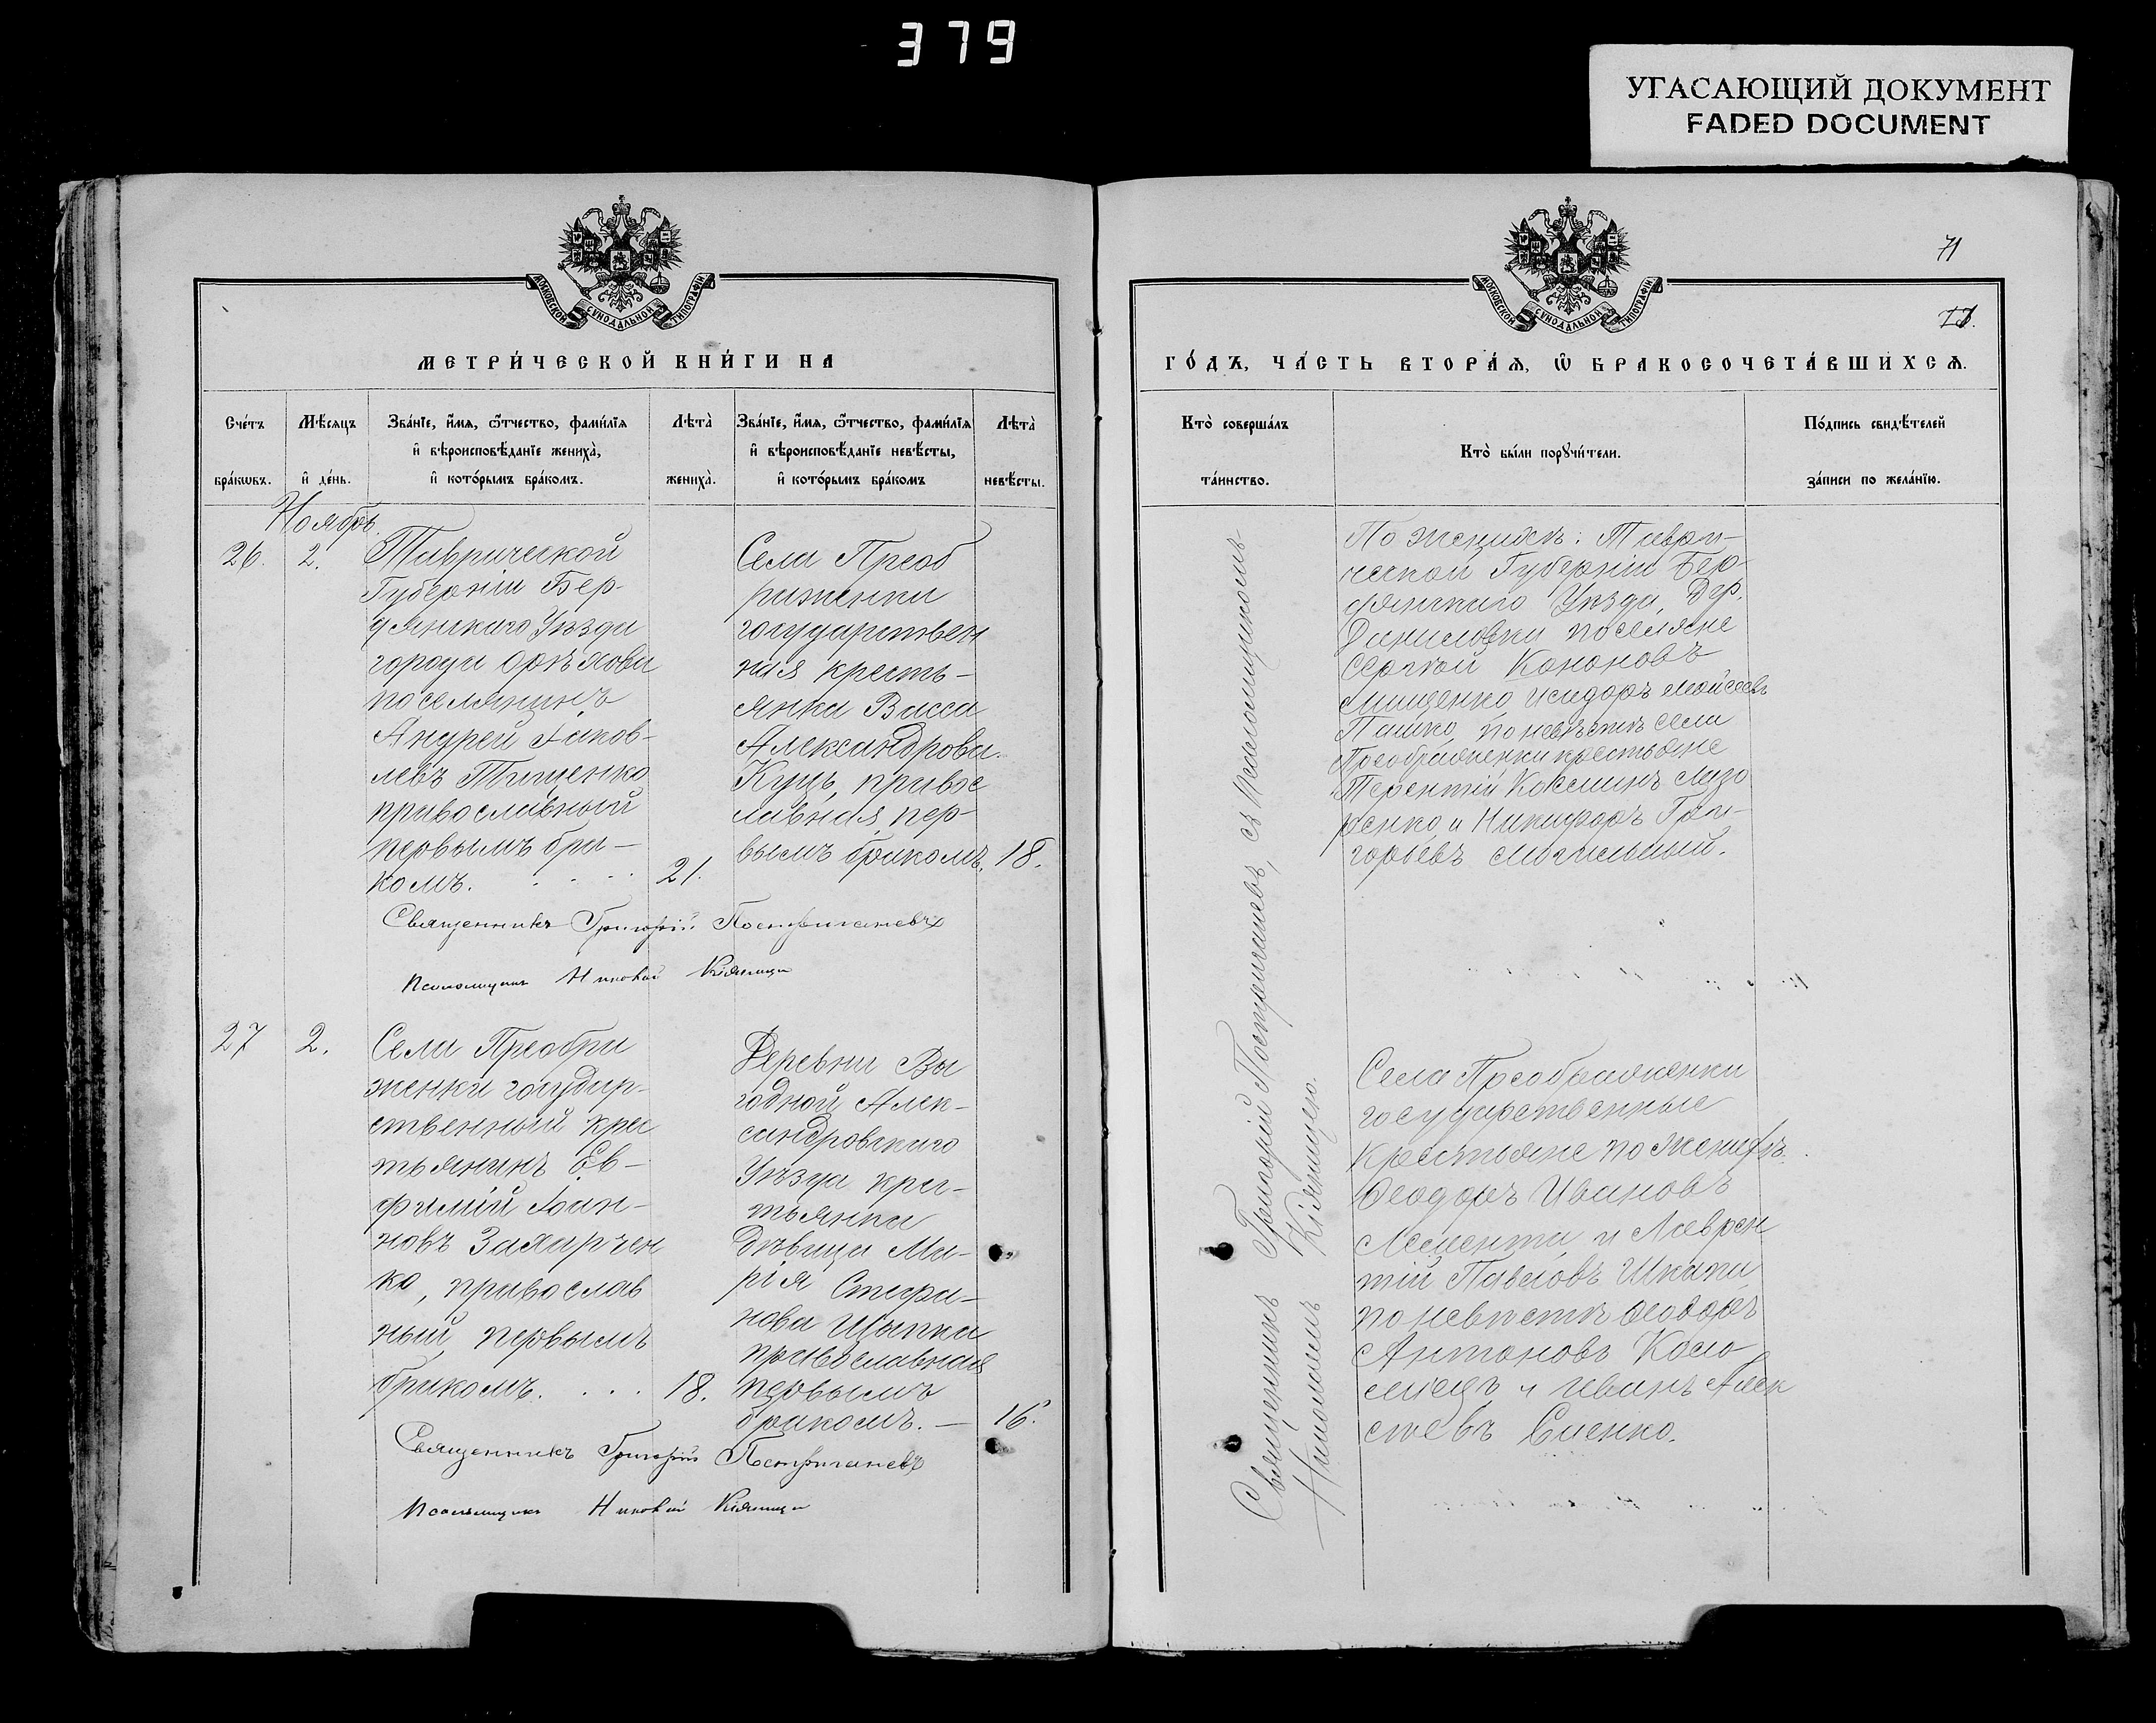 379
УГАСАЮЩИЙ ДОКУМЕНТ
FADED DOCUMENT
МОСКОВСКОЙ СУНОДАЛЬНОЙ ТИПОГРАФІИ
МЕТРИ́ЧЕСКОЙ КНИ́ГИ НА
Сче́тъ бра́кωвъ.
Мѣ́сяцъ и҆ де́нь.
Зва́нїе, и҆́мѧ, ѻ҆́тчество, фами́лїѧ
и҆ вѣроисповѣ́данїе жениха̀,
и҆ кото́рымъ бра́комъ.
Лѣта̀ жениха̀.
Зва́нїе, и҆́мѧ, ѻ҆́тчество, фами́лїѧ
и҆ вѣроисповѣ́данїе невѣ́сты,
и҆ кото́рымъ бра́комъ
Лѣта̀ невѣ́сты.
Ноябрь
26. 2.
Таврической
Губерніи Бер-
дянскаго Уѣзда
города Орѣхова
поселянинъ
Андрей Іаков-
левъ Тищенко
православный
первымъ бра-
комъ. . . . .
21.
Села Преоб
раженки
государствен
ная кресть-
янка Васса
Александрова
Куцъ, правос
лавная, пер-
вымъ бракомъ,
18.
Священникъ Григорій Постригачевъ
Псаломщикъ Николай Кіяница
27 2.
Села Преобра
женки государ-
ственный крес
тьянинъ Ев-
фимій Іоан-
новъ Захарчен
ко, православ
ный, первымъ
бракомъ. . . .
18.
Деревни Вы
годной Алек-
сандровскаго
Уѣзда крес-
тьянка
дѣвица Ма-
рія Стефа-
нова Цыпка
православная
первымъ
бракомъ. —
16.
Священникъ Григорій Постригачевъ
Псаломщикъ Николай Кіяница
71
МОСКОВСКОЙ СУНОДАЛЬНОЙ ТИПОГРАФІИ
ГО́ДЪ, ЧА́СТЬ ВТОРА́Ѧ, Ѽ БРАКОСОЧЕТА́ВШИХСѦ.
Кто̀ соверша́лъ та́инство.
Кто̀ бы́ли порꙋчи́тели.
По́дпись свидѣ́телей за́писи по жела́нїю.
Священникъ Григорій Постригачевъ, съ Псаломщикомъ
Николаемъ Кіяницею.
По женихѣ: Таври-
ческой Губерніи Бер-
дянскаго Уѣзда, Дер.
Даниловки поселяне
Сергѣй Кононовъ
Мищенко Исидоръ Моисеевъ
Пашко, по невѣстѣ села
Преображенки крестьяне
Терентій Козминъ Лазо
ренко и Никифоръ Гри-
горьевъ Могильный.
Села Преображенки
государственные
крестьяне по женихѣ
Феодоръ Ивановъ
и Лаврен
тій Павловъ Шкапа
по невѣстѣ Феодоръ
Антоновъ Коло
міецъ и Иванъ Алек
сѣевъ Сненко.